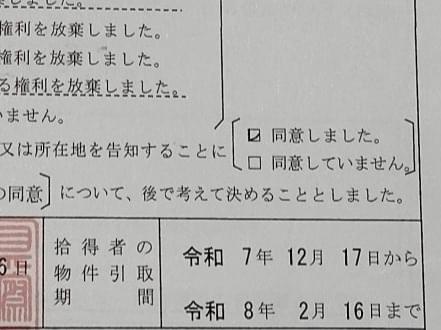 権利を放棄しました。
権利を放棄しました。
る権利を放棄しました。
いません。
又は所在地を告知することに
☑ 同意しました。
☐ 同意していません。
の同意〕について、後で考えて決めることとしました。
6日
拾得者の
物件引取
期間
令和 7年 12月 17日から
令和 8年 2月 16日まで